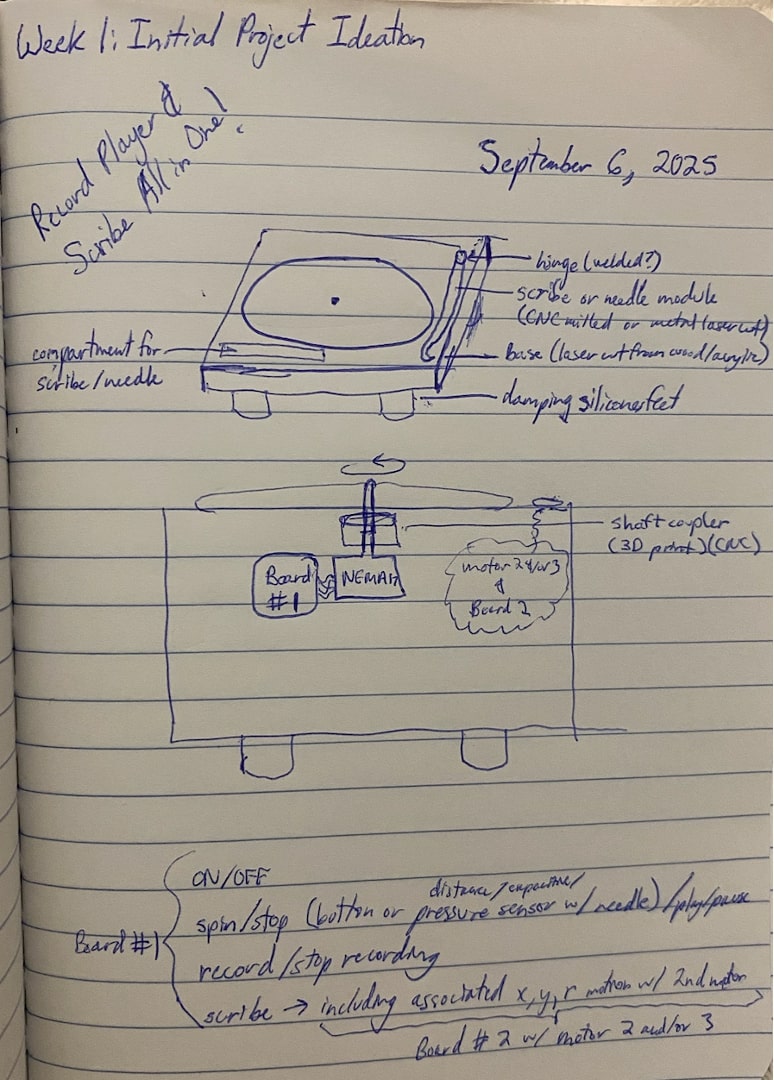 Week 1: Initial Project Ideation
Record Player &
Scribe All in One!
September 6, 2025
hinge (welded?)
scribe or needle module
(CNC milled or metal laser cut)
compartment for
scribe/needle
base (laser cut from wood/acrylic)
damping silicone feet
shaft coupler
(3D print) (CNC)
Board
#1
NEMA17
motor 2 &/or 3
&
Board 2
Board #1
ON/OFF
distance/capacitive/
spin/stop (button or pressure sensor w/ needle) /play/pause
record/stop recording
scribe → including associated x, y, r motion w/ 2nd motor
Board # 2 w/ motor 2 and/or 3